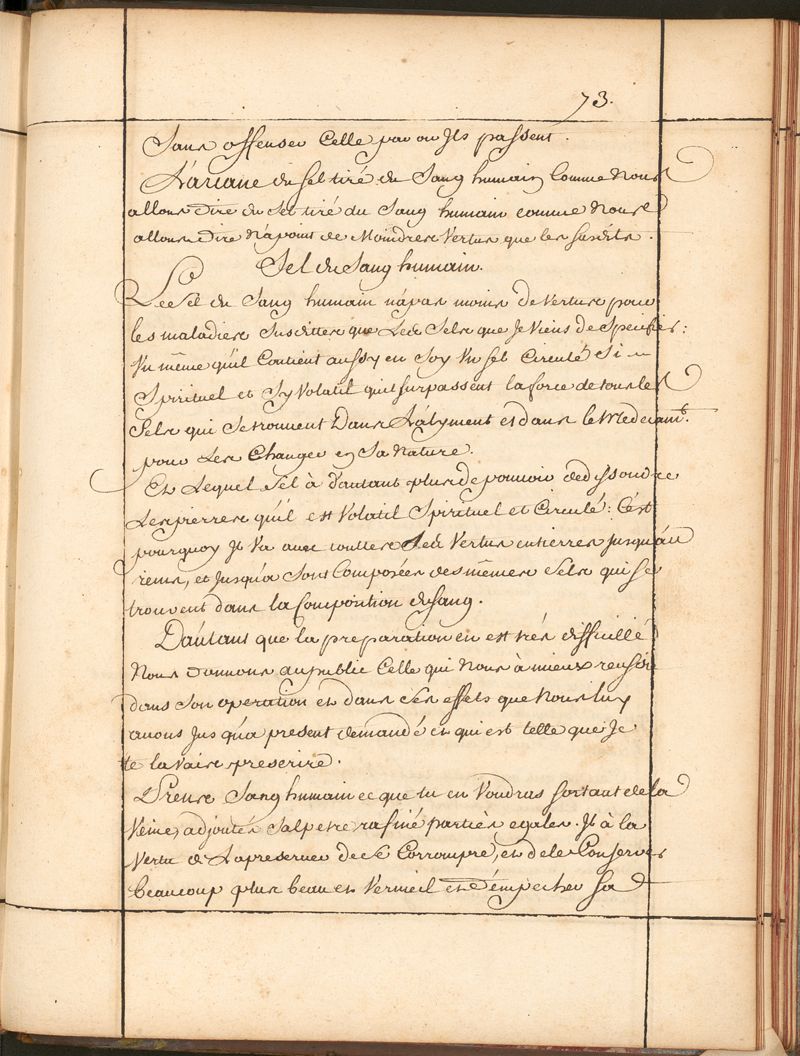 73.
Sans offenser Celle par ou Ils passent.
L'arcane du sel tiré du Sang humain Comme Nous
allons dire du Sel tiré du Sang humain comme Nous
allons dire N'a point de Moindres Vertus que les susdits.
Sel du Sang humain.
Le Sel du Sang humain n'a pas moins de Vertus pour
les maladies Susdittes que Les Sels que Je Viens de Specifier:
Vu même qu'il Contient aussy en Soy Un sel Circulé Si
Spirituel et Sy Volatil qu'il surpassent la force de tous les
Sels qui Se trouvent Dans L'alyment et dans le Medecamt.
pour Les Changer en Sa Nature.
Et Lequel Sel à D'autant plus de pouvoir de dissoudre
Les pierres qu'il est Volatil Spirituel et Circulé: C'est
pourquoy Il Va avec touttes Ses Vertus entierres Jusqu'au
reins, et Jusqu'a Sont Composées des mêmes Sels qui se
trouvent dans la Composition du sang.
D'autant que la preparation en est trés difficille
Nous donnons au public Celle qui Nous à mieux reussie
dans Son operation et dans Ses effets que Nous luy
avons Jus qu'a present demandé et qui est telle que Je
te la Vais prescrire.
Prens Sang humain ce que tu en Voudras sortant de la
Veine, adjoutés Salpetre rafiné parties egales. Il à la
Vertu de La preserver de Se Corrompre, et de le Conserver
beaucoup plus beau et Vermeil et D'empecher sa